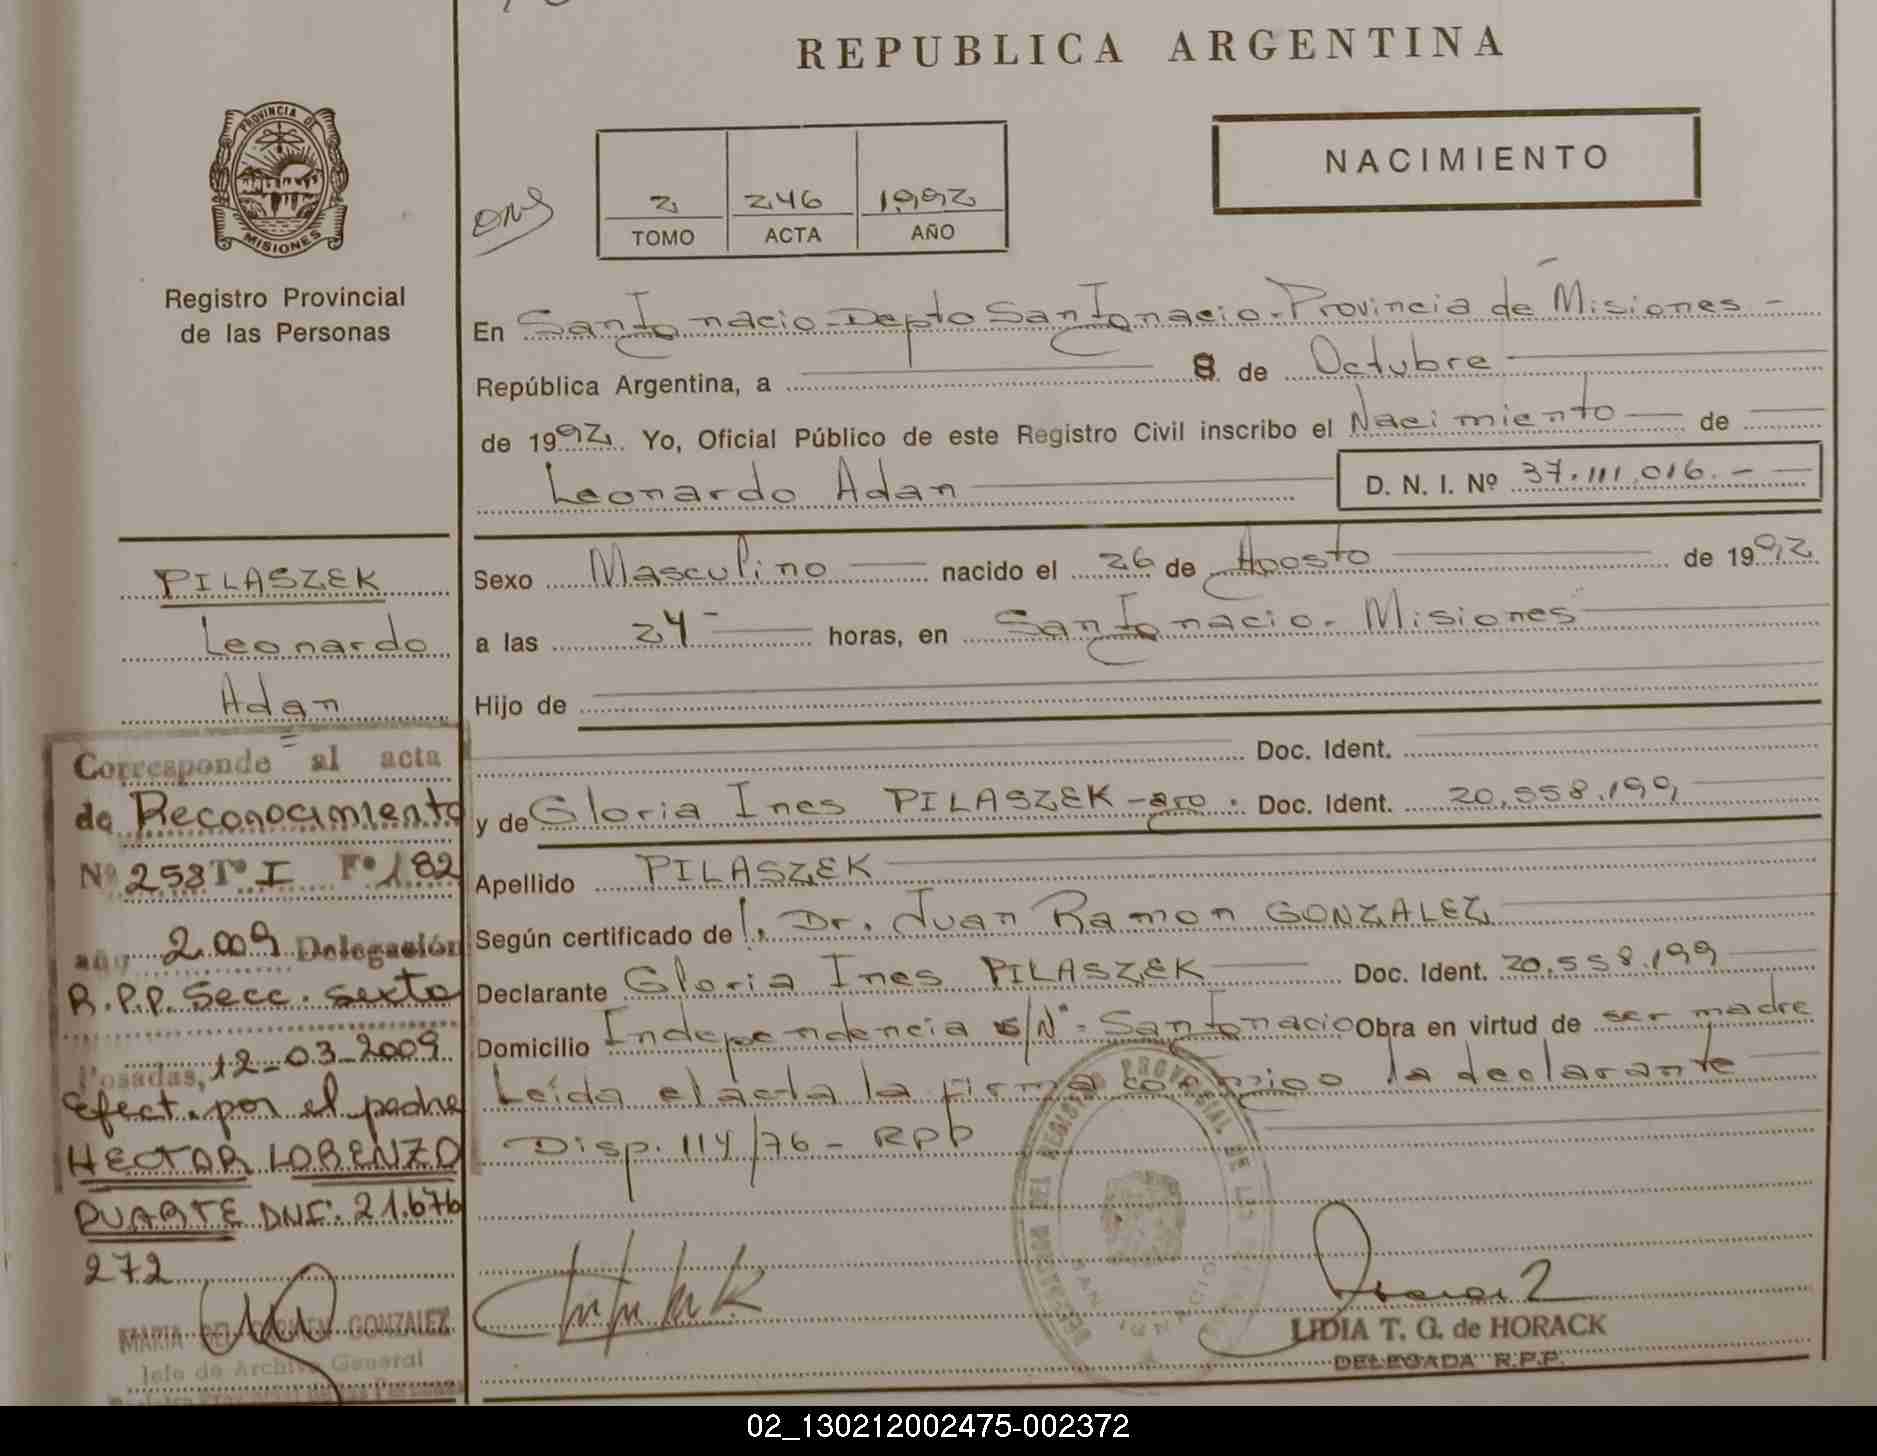 REPUBLICA ARGENTINA
PROVINCIA DE
MISIONES
Registro Provincial
de las Personas
2 246 1992
TOMO ACTA AÑO
NACIMIENTO
En San Ignacio - Depto San Ignacio - Provincia de Misiones -
República Argentina, a 8 de Octubre
de 1992. Yo, Oficial Público de este Registro Civil inscribo el Nacimiento de
Leonardo Adan
D. N. I. Nº 37.111.016.-
Sexo Masculino nacido el 26 de Agosto de 1992
a las 24 horas, en San Ignacio. Misiones
Hijo de
Doc. Ident.
y de Gloria Ines PILASZEK - arg. Doc. Ident. 20.558.199
Apellido PILASZEK
Según certificado de Dr. Juan Ramon GONZALEZ
Declarante Gloria Ines PILASZEK Doc. Ident. 20.558.199
Domicilio Independencia s/Nº - San Ignacio Obra en virtud de ser madre
Leída el acta la firma conmigo la declarante
Disp. 114/76 - RPP
PILASZEK
Leonardo
Adan
Corresponde al acta
de Reconocimiento
Nº 258 Tº I Fº 182
año 2.009 Delegación
R.P.P. Secc. Sexta
Posadas, 12-03-2009
Efect. por el padre
HECTOR LORENZO
DUARTE DNI: 21.676
272
MARIA DEL CARMEN GONZALEZ
Jefe de Archivo General
SAN IGNACIO
LIDIA T. G. de HORACK
DELEGADA R.P.P.
02_130212002475-002372